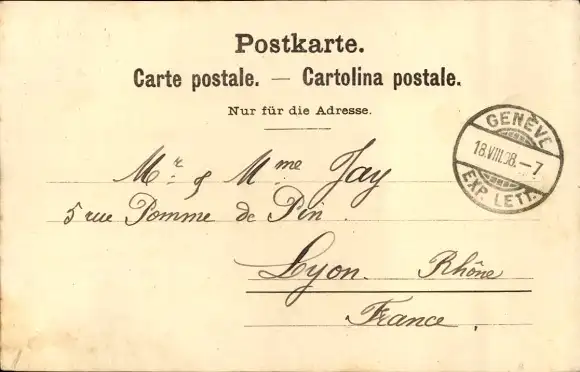 Postkarte.
Carte postale. — Cartolina postale.
Nur für die Adresse.
GENÈVE
18.VIII.98.–7
EXP. LETT.
Mr. & Mme Jay
5 rue Pomme de Pin
Lyon. Rhône
France.